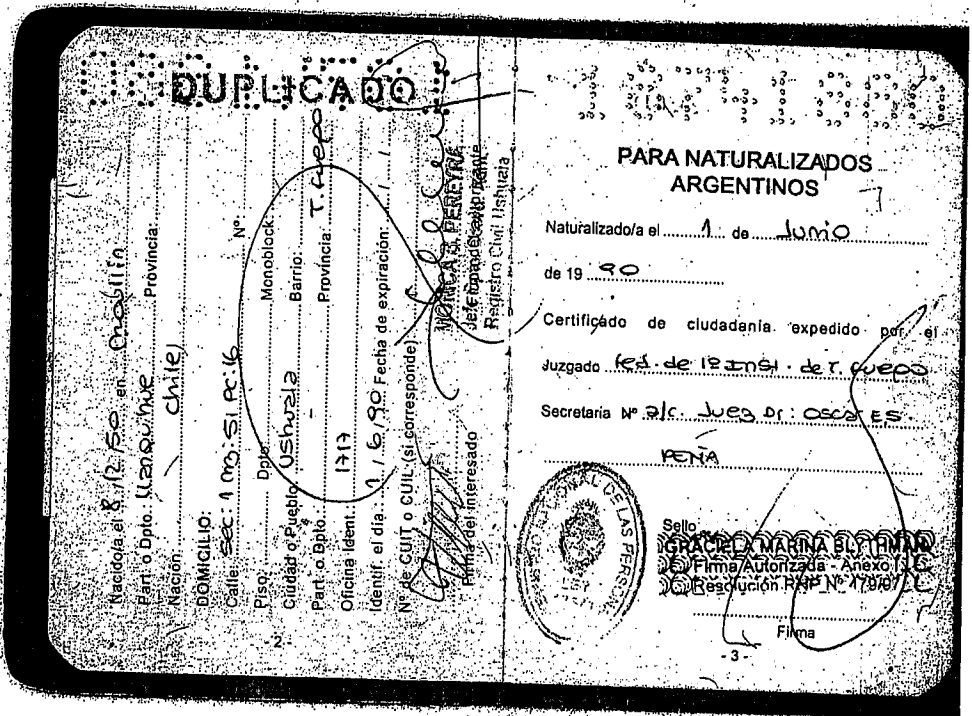 DUPLICADO
Nacido/a el 8/12/50 en
Part. o Dpto. Llanquihue Provincia:
Nación Chile
DOMICILIO:
Calle: Sec: 1 Nº
Piso: Dpto. Monoblock
Ciudad o Pueblo: Ushuaia Barrio:
Part. o Dpto. - Provincia: T. Fuego
Oficina Ident. 1717
Identif. el día: 1/6/90 Fecha de expiración: / /
Nº de CUIT o CUIL (si corresponde)
Firma del interesado
PEREYRA
Registro Civil Ushuaia
- 2 -
PARA NATURALIZADOS
ARGENTINOS
Naturalizado/a el 1 de Junio
de 19 90
Certificado de ciudadanía expedido por el
Juzgado Fed. de 1ª Inst. de T. Fuego
Secretaría Nº a/c. Juez Dr: Oscar ES.
PEÑA
Sello
GRACIELA MARINA BLYTHMAN
Firma Autorizada - Anexo
Resolución RNP Nº
Firma
- 3 -